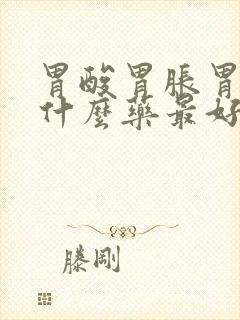 胃酸胃胀胃
什麼藥最好
滕剛